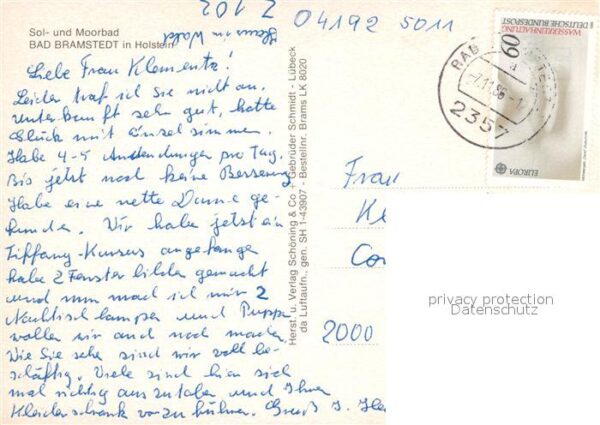 Z 102
04192 5011
Sol- und Moorbad
BAD BRAMSTEDT in Holstein
Liebe Frau Klementz!
Leider traf ich Sie nicht an.
Unterkunft sehr gut, hatte
Glück mit Einselzimmer.
Habe 4-5 Anwendungen pro Tag.
Bis jetzt noch keine Besserung
Habe eine nette Dame ge-
funden. Wir haben jetzt ein
Tiffany-Kursus angefangen
habe 2 Fensterbilder gemacht
und nun mach ich mir 2
Nachtischlampen und Puppe
wollen wir auch noch machen
Wie Sie sehen sind wir voll be-
schäftig. Viele sind hier sich
mal richtig auszutoben und Ihren
Kleiderschrank vorzuführen. Gruß I.
Herst. u. Verlag Schöning & Co + Gebrüder Schmidt - Lübeck
da Luftaufn., gen. SH 1-43907 - Bestellnr. Brams LK 8020
DEUTSCHE BUNDESPOST
WASSERREINHALTUNG
60
EUROPA
BAD
-7.11.86-
a
2357
Frau
2000
privacy protection
Datenschutz